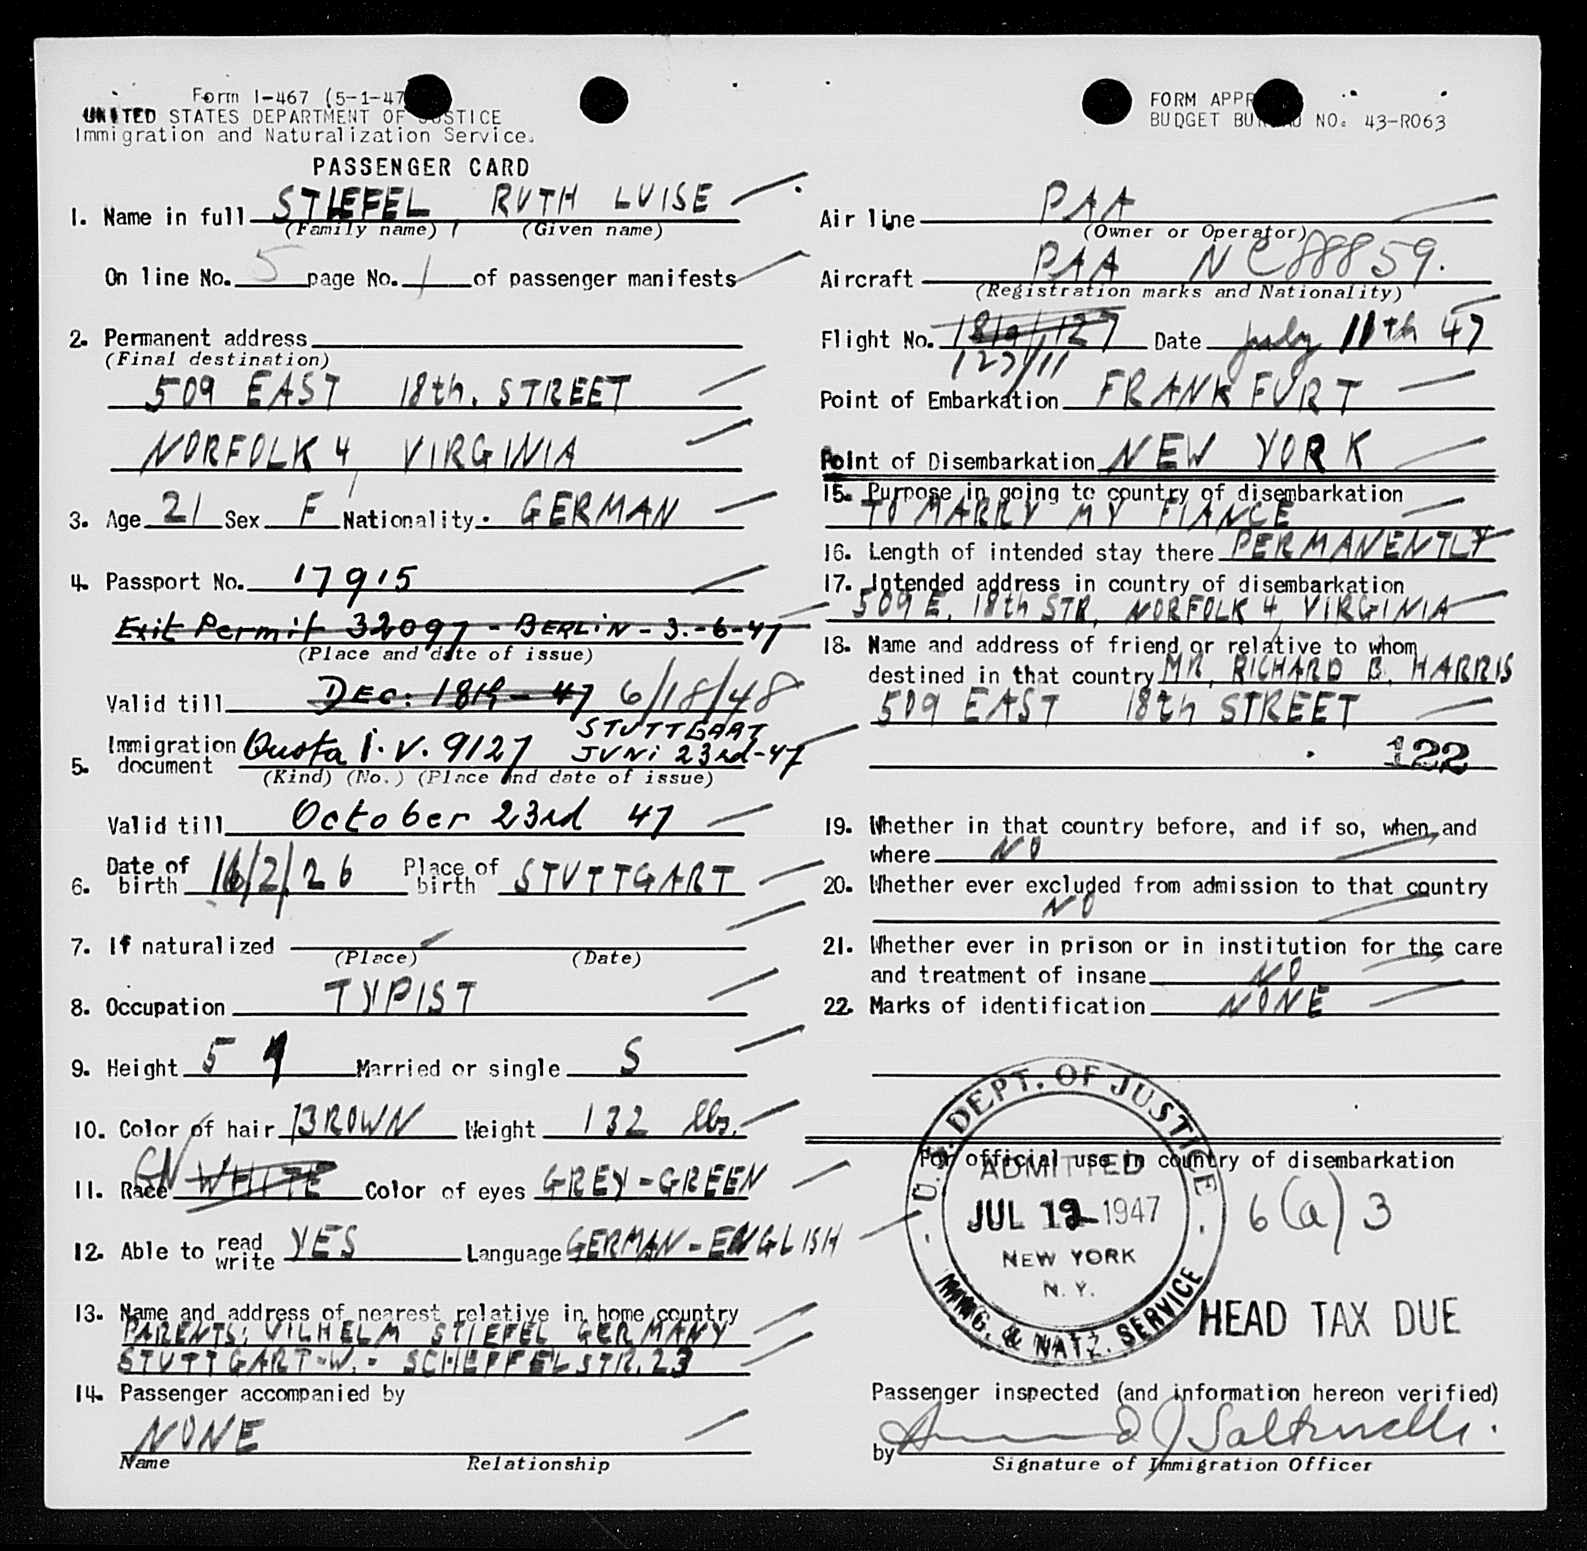 Form I-467 (5-1-47
UNITED STATES DEPARTMENT OF JUSTICE
Immigration and Naturalization Service.
PASSENGER CARD
1. Name in full STIEFEL, RUTH LUISE
(Family name) (Given name)
On line No. 5 page No. 1 of passenger manifests
2. Permanent address
(Final destination)
509 EAST 18th. STREET
NORFOLK 4, VIRGINIA
3. Age 21 Sex F Nationality. GERMAN
4. Passport No. 17915
Exit Permit 32097 - BERLIN - 3.-6-47
(Place and date of issue)
Valid till DEC: 18th - 47 6/18/48
STUTTGART
5. Immigration document Quota I.V. 9127 JUNI 23rd-47
(Kind) (No.) (Place and date of issue)
Valid till October 23rd 47
6. Date of birth 16/2/26 Place of birth STUTTGART
7. If naturalized
(Place) (Date)
8. Occupation TYPIST
9. Height 5 Married or single S
10. Color of hair BROWN Weight 132 lbs.
11. Race GN WHITE Color of eyes GREY-GREEN
12. Able to read write YES Language GERMAN-ENGLISH
13. Name and address of nearest relative in home country
PARENTS: VILHELM STIEFEL GERMANY
STUTTGART-W.- SCHEFFELSTR. 23
14. Passenger accompanied by
NONE
Name Relationship
FORM APPR
BUDGET BUREAU NO. 43-R063
Air line PAA
(Owner or Operator)
Aircraft PAA NC88859.
(Registration marks and Nationality)
Flight No. Date July 11th 47
127/11
Point of Embarkation FRANKFURT
Point of Disembarkation NEW YORK
15. Purpose in going to country of disembarkation
TO MARRY MY FIANCE
16. Length of intended stay there PERMANENTLY
17. Intended address in country of disembarkation
509 E. 18th STR. NORFOLK 4, VIRGINIA
18. Name and address of friend or relative to whom
destined in that country MR. RICHARD B. HARRIS
509 EAST 18th STREET
122
19. Whether in that country before, and if so, when and
where NO
20. Whether ever excluded from admission to that country
NO
21. Whether ever in prison or in institution for the care
and treatment of insane NO
22. Marks of identification NONE
For official use in country of disembarkation
U.S. DEPT. OF JUSTICE
ADMITTED
JUL 12 1947
NEW YORK
N. Y.
IMMG. & NATZ. SERVICE
6(a)3
HEAD TAX DUE
Passenger inspected (and information hereon verified)
by
Signature of Immigration Officer